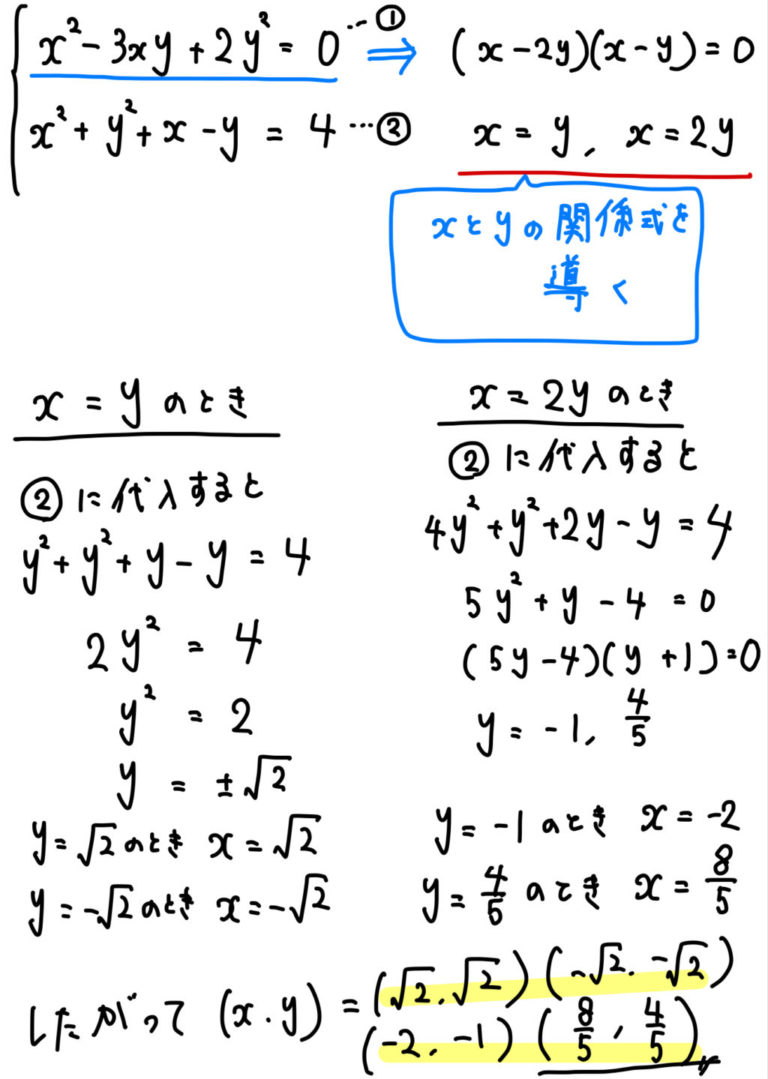 x² - 3xy + 2y² = 0 …① ⇒ (x - 2y)(x - y) = 0
x² + y² + x - y = 4 …② x = y, x = 2y
xとyの関係式を
導く
x = y のとき
②に代入すると
y² + y² + y - y = 4
2y² = 4
y² = 2
y = ±√2
y = √2 のとき x = √2
y = -√2 のとき x = -√2
x = 2y のとき
②に代入すると
4y² + y² + 2y - y = 4
5y² + y - 4 = 0
(5y - 4)(y + 1) = 0
y = -1, 4/5
y = -1 のとき x = -2
y = 4/5 のとき x = 8/5
したがって (x.y) = (√2, √2) (-√2. -√2)
(-2, -1) (8/5, 4/5)